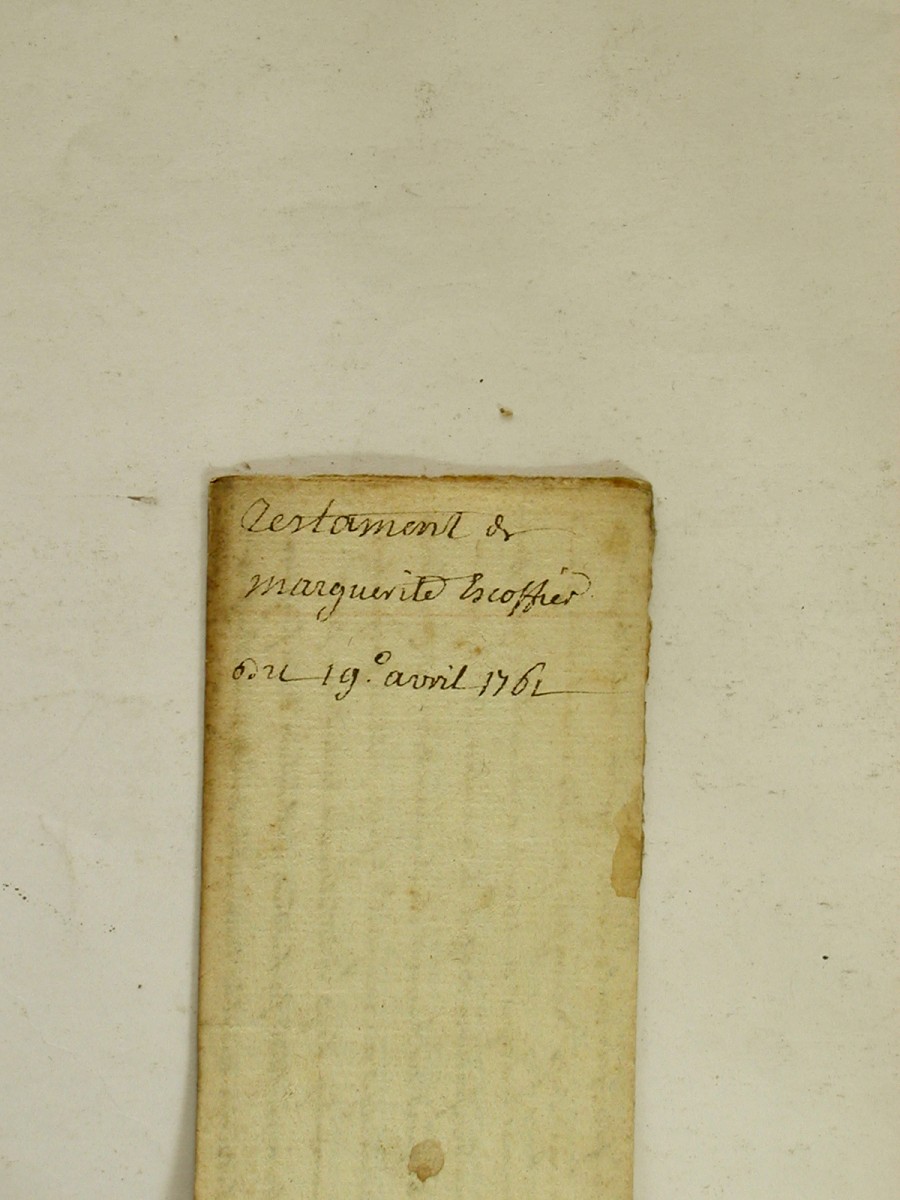 Testament de
marguerite Escoffier
du 19e avril 1761